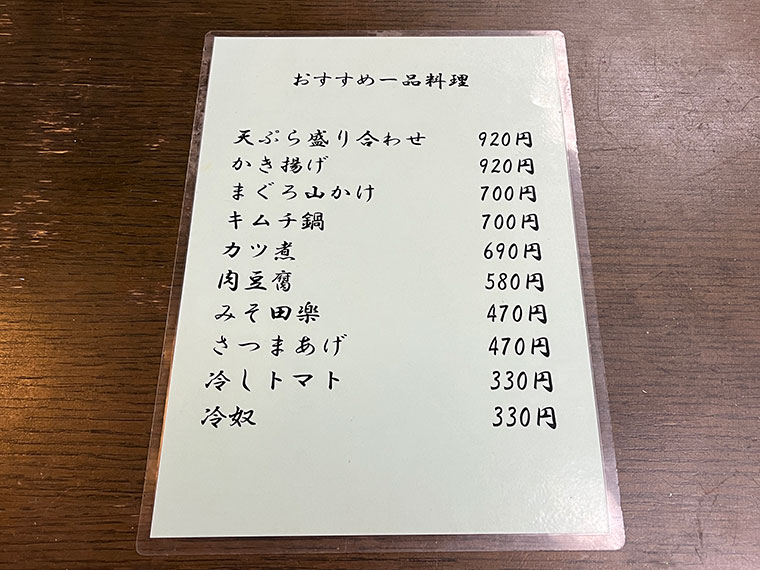 おすすめ一品料理
天ぷら盛り合わせ 920円
かき揚げ 920円
まぐろ山かけ 700円
キムチ鍋 700円
カツ煮 690円
肉豆腐 580円
みそ田楽 470円
さつまあげ 470円
冷しトマト 330円
冷奴 330円